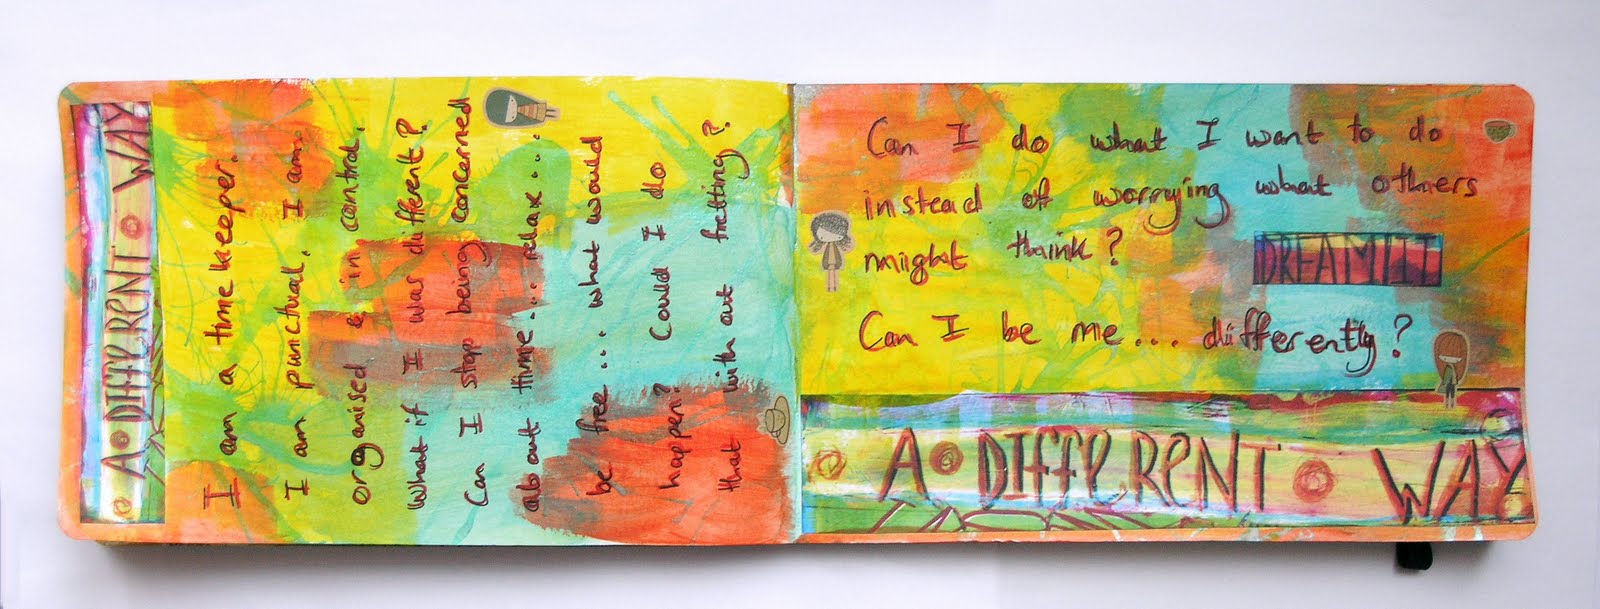 A DIFFERENT WAY
I am a time keeper.
I am punctual. I am
organised & in control.
What if I was different?
Can I stop being concerned
about time.... relax...
be free.... what would
happen? Could I do
that with out fretting?
Can I do what I want to do
instead of worrying what others
might think?
DREAM IT
Can I be me... differently?
A DIFFERENT WAY